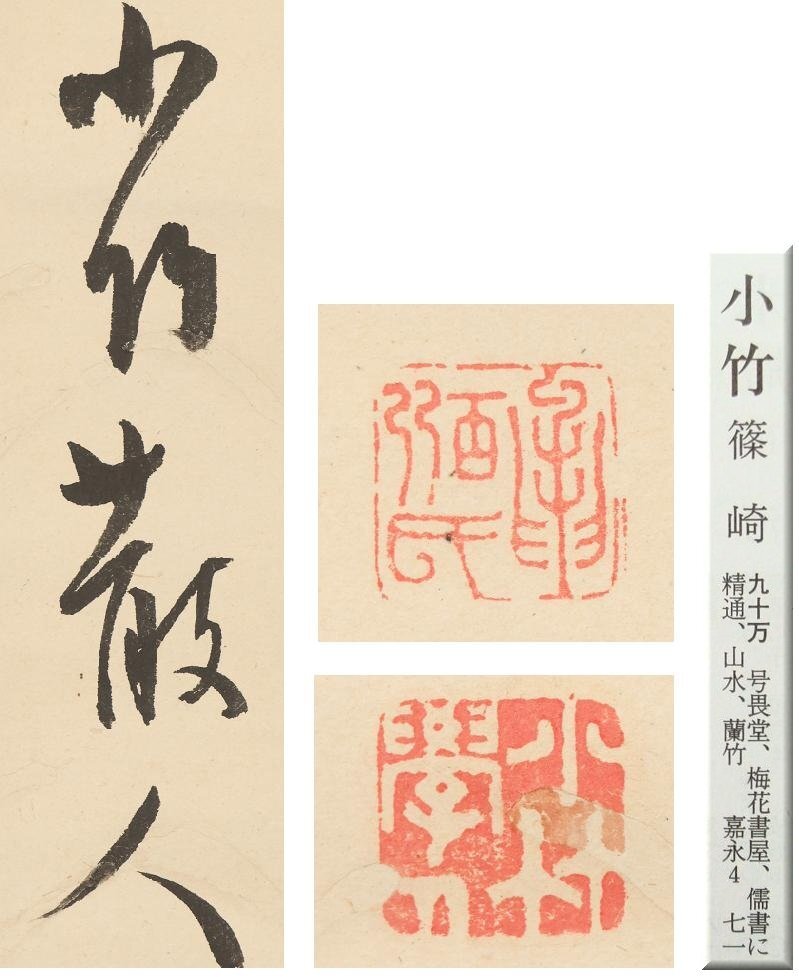 小竹散人
承
弼氏
小竹
小竹 篠崎
九十万 号畏堂、梅花書屋、儒書に
精通、山水、蘭竹 嘉永4 七一